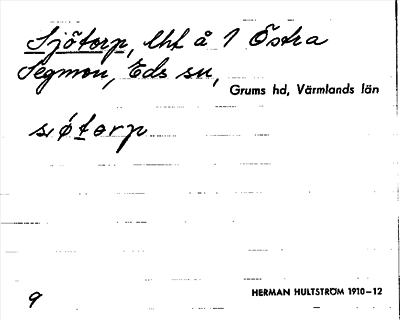 Sjötorp, lht å 1 Östra
Segmon, Eds sn,
Grums hd, Värmlands län
s, ǿtorp
9
HERMAN HULTSTRÖM 1910-12